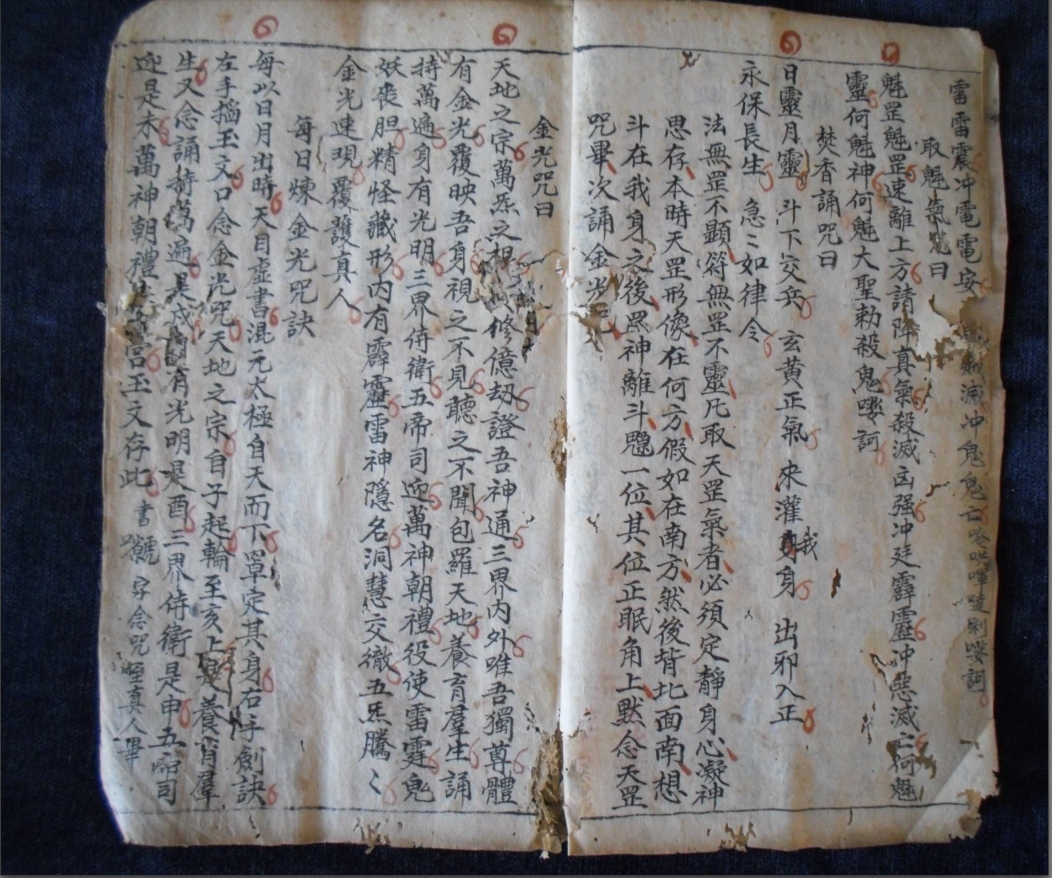 雷雷震冲電電安 滅冲鬼鬼亡
取魁氣咒曰
魁罡魁罡速離上方請降真氣殺滅凶强冲廷霹靂冲惡滅亡何魁
靈何魁神何魁大聖勅殺鬼嘍訶
焚香誦咒曰
日靈月靈 斗下交兵 玄黃正氣 來灌我身 出邪入正
永保長生 急〻如律令
法無罡不顯符無罡不靈凡取天罡氣者必須定靜身心凝神
思存本時天罡形像在何方假如在南方然後背北面南想
斗在我身之後眾神離斗魁一位其位正眠角上默念天罡
咒畢次誦金光咒
金光咒曰
天地之宗萬炁之根 修億劫證吾神通三界內外唯吾獨尊體
有金光覆映吾身視之不見聽之不聞包羅天地養育羣生誦
持萬遍身有光明三界侍衛五帝司迎萬神朝禮役使雷霆鬼
妖喪胆精怪藏形內有霹靂雷神隱名洞慧交徹五炁騰〻
金光速現覆護真人
每日煉金光咒訣
每以日月出時天目虛書混元太極自天而下罩定其身右手劍訣
左手搯玉文口念金光咒天地之宗自子起輪至亥上 養育羣
生又念誦持萬遍是戌 有光明是酉三界侍衛是申五帝司
迎是未萬神朝禮 宮玉文存此 書 字念咒 真人畢